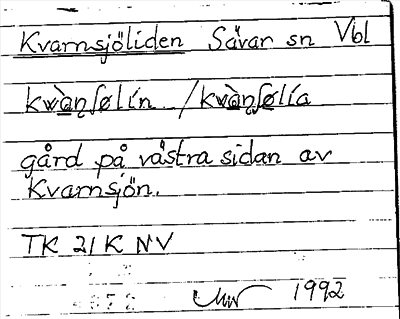 Kvarnsjöliden Sävar sn Vbl
kwàn̩ʃølin /kwàn̩ʃølia
gård på västra sidan av
Kvarnsjön.
TK 21 K NV
1992